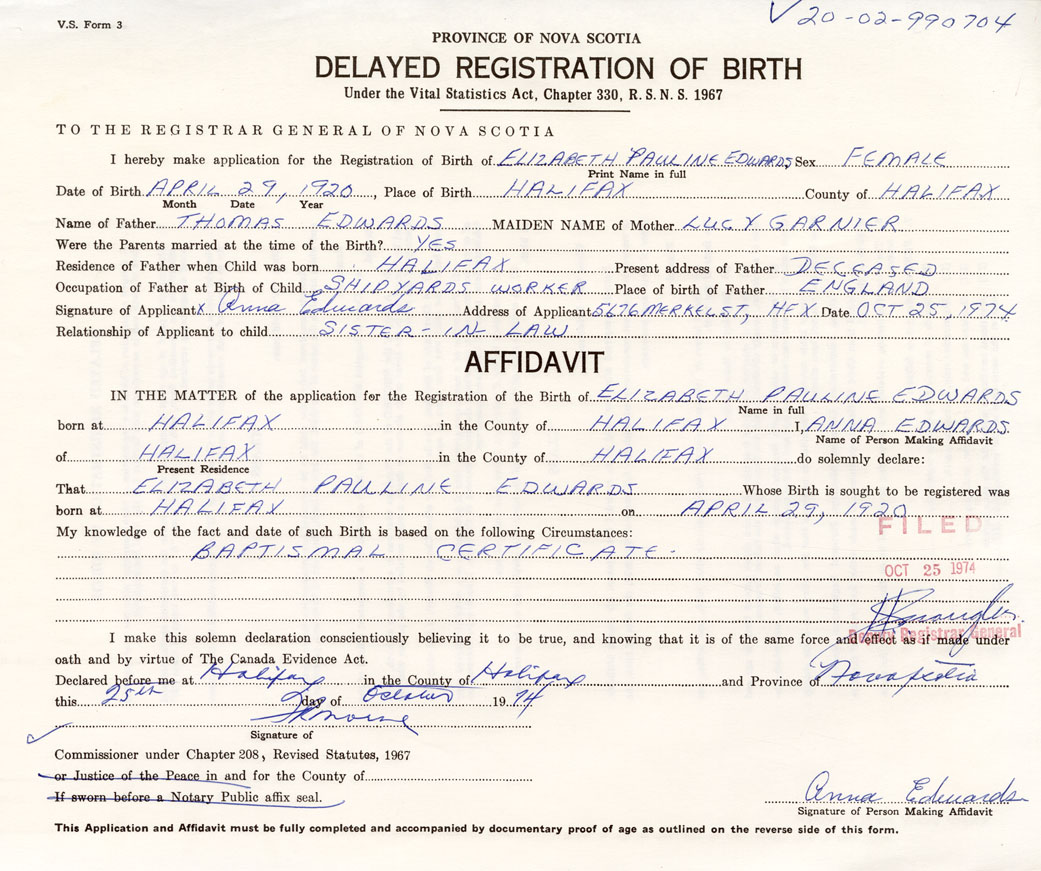 V.S. Form 3
✓ 20-02-990704
PROVINCE OF NOVA SCOTIA
DELAYED REGISTRATION OF BIRTH
Under the Vital Statistics Act, Chapter 330, R. S. N. S. 1967
TO THE REGISTRAR GENERAL OF NOVA SCOTIA
I hereby make application for the Registration of Birth of ELIZABETH PAULINE EDWARDS, Sex FEMALE
Print Name in full
Date of Birth APRIL 29, 1920, Place of Birth HALIFAX County of HALIFAX
Month Date Year
Name of Father THOMAS EDWARDS MAIDEN NAME of Mother LUCY GARNIER
Were the Parents married at the time of the Birth? YES
Residence of Father when Child was born HALIFAX Present address of Father DECEASED
Occupation of Father at Birth of Child SHIPYARDS WORKER Place of birth of Father ENGLAND
Signature of Applicant x Anna Edwards Address of Applicant 5676 MERKEL ST, HFX Date OCT 25, 1974
Relationship of Applicant to child SISTER-IN LAW
AFFIDAVIT
IN THE MATTER of the application for the Registration of the Birth of ELIZABETH PAULINE EDWARDS
Name in full
born at HALIFAX in the County of HALIFAX I, ANNA EDWARDS
Name of Person Making Affidavit
of HALIFAX in the County of HALIFAX do solemnly declare:
Present Residence
That ELIZABETH PAULINE EDWARDS Whose Birth is sought to be registered was
born at HALIFAX on APRIL 29, 1920
My knowledge of the fact and date of such Birth is based on the following Circumstances:
FILED
BAPTISMAL CERTIFICATE.
OCT 25 1974
Deputy Registrar General
I make this solemn declaration conscientiously believing it to be true, and knowing that it is of the same force and effect as if made under
oath and by virtue of The Canada Evidence Act.
Declared before me at Halifax in the County of Halifax and Province of Nova Scotia
this 25th day of October 19 74
Signature of
Commissioner under Chapter 208, Revised Statutes, 1967
or Justice of the Peace in and for the County of
If sworn before a Notary Public affix seal.
Anna Edwards
Signature of Person Making Affidavit
This Application and Affidavit must be fully completed and accompanied by documentary proof of age as outlined on the reverse side of this form.